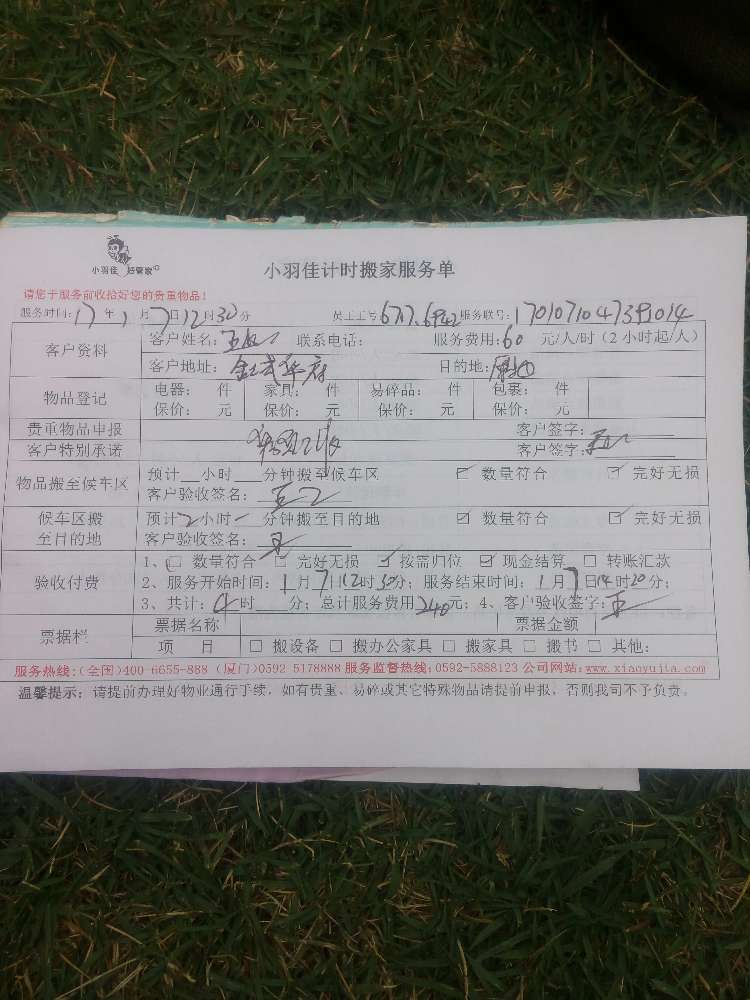 小羽佳 好管家
小羽佳计时搬家服务单
请您于服务前收拾好您的贵重物品！
服务时间：17年1月7日12时30分 员工工号6717.6942 服务联号：1701071047391014
客户资料 客户姓名：王 联系电话： 服务费用：60 元/人/时（2小时起/人）
客户地址：金 华府 目的地：
物品登记 电器： 件 家具： 件 易碎品： 件 包裹： 件
保价： 元 保价： 元 保价： 元 保价： 元
贵重物品申报 客户签字：
客户特别承诺 客户签字：王
物品搬至候车区 预计 小时 分钟搬至候车区 ☑ 数量符合 ☑ 完好无损
客户验收签名：王
候车区搬至目的地 预计2小时 分钟搬至目的地 ☑ 数量符合 ☑ 完好无损
客户验收签名：王
验收付费 1、☑ 数量符合 ☑ 完好无损 ☑ 按需归位 ☑ 现金结算 □ 转账汇款
2、服务开始时间：1月7日12时30分；服务结束时间：1月7日14时20分；
3、共计：4时 分；总计服务费用240元；4、客户验收签字：王
票据栏 票据名称 票据金额
项 目 □ 搬设备 □ 搬办公家具 □ 搬家具 □ 搬书 □ 其他：
服务热线：（全国）400-6655-888（厦门）0592 5178888 服务监督热线：0592-5888123 公司网站：www.xiaoyujia.com
温馨提示：请提前办理好物业通行手续，如有贵重、易碎或其它特殊物品请提前申报，否则我司不予负责。